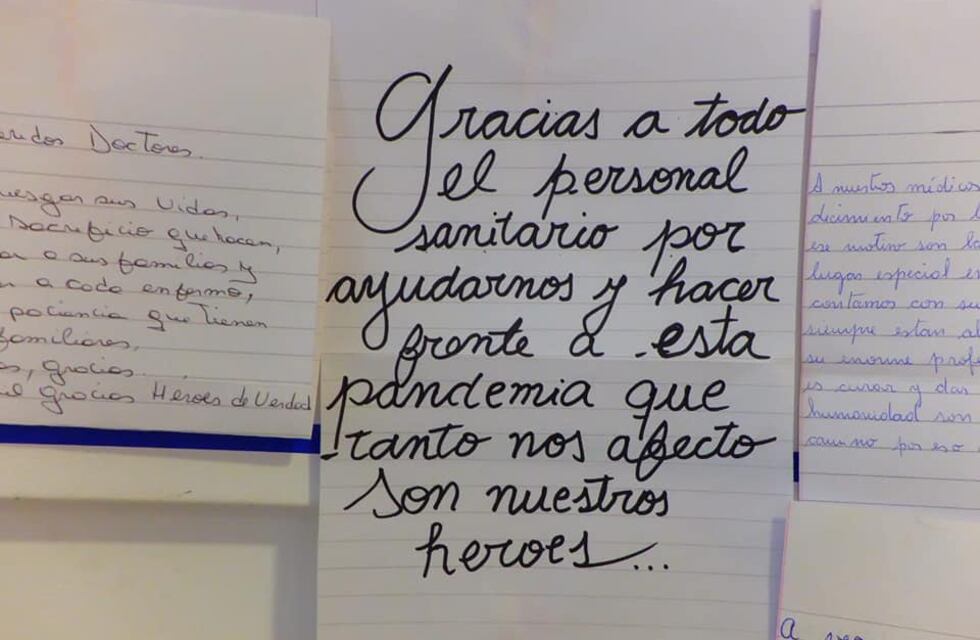 Doctores.
sus vidas,
Sacrificio que hacen,
a sus familias y
a cada enfermo,
paciencia que tienen
familiares,
gracias...
gracias Heroes de Verdad
Gracias a todo
el personal
sanitario por
ayudarnos y hacer
frente a esta
pandemia que
tanto nos afecto
Son nuestros
heroes...
A nuestros médicos
por
ese motivo son
lugar especial
contamos con
siempre estan
su enorme
es curar y dar
humanidad son
camino por eso
a